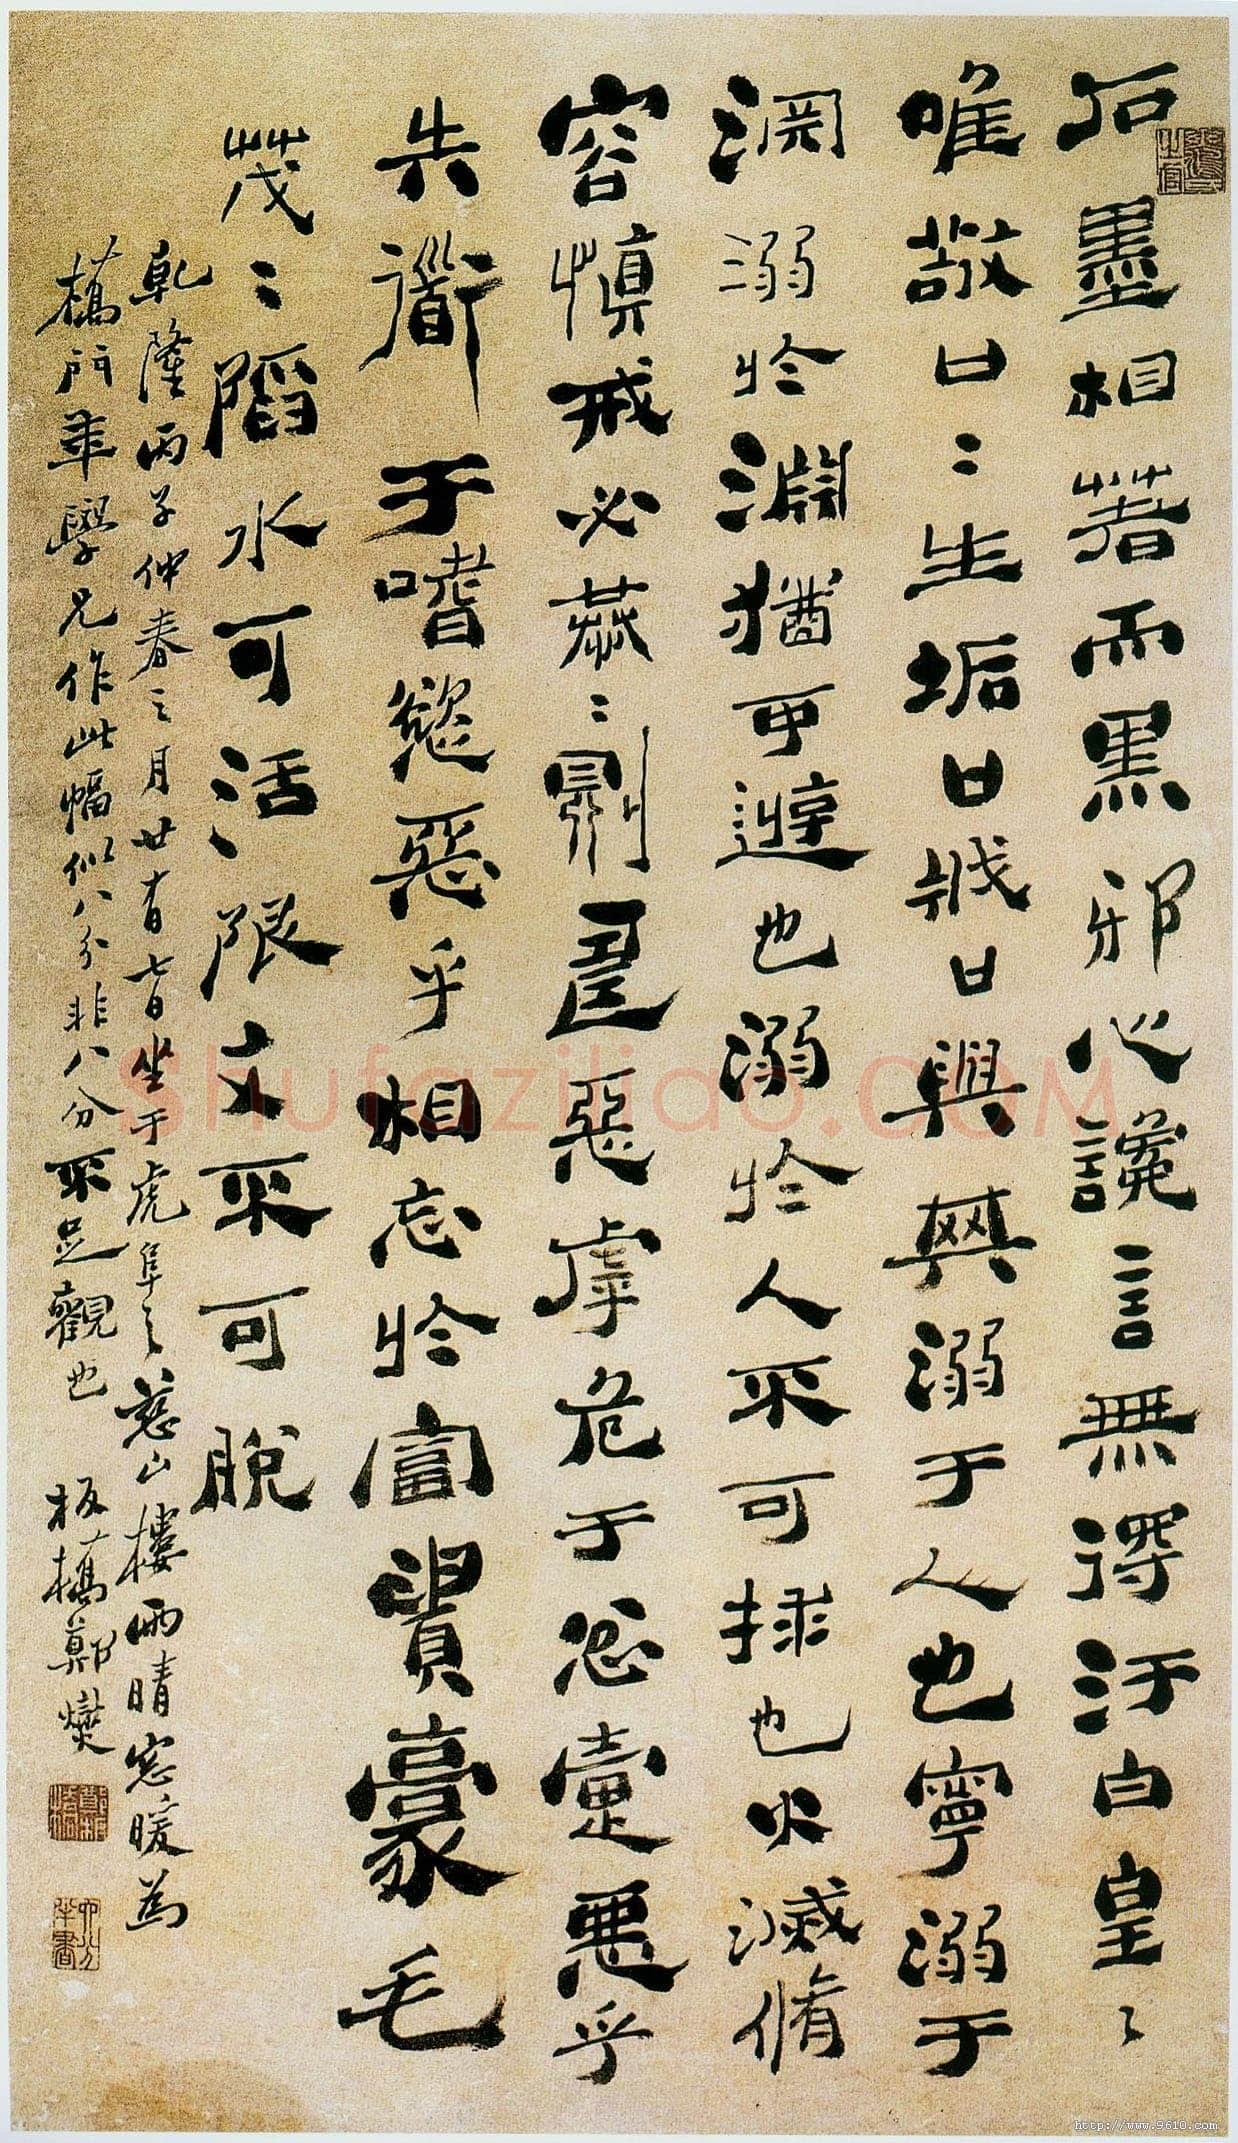 石墨相著而黑邪心讒言無得汙白皇〻
唯敬口〻生垢口戕口與其溺于人也寧溺于
淵溺於淵猶可遊也溺於人不可救也火滅脩
容慎戒必恭〻則壽惡虖危于忿疐惡乎
失道于嗜慾惡乎相忘於富貴豪毛
茂〻陷水可活陷文不可脫
乾隆丙子仲春之月廿有七日坐于虎阜之慈山樓雨晴窓暖為
橋門年學兄作此幅似八分非八分不足觀也 板橋鄭燮
shufaziliao.COM
http://www.9610.com